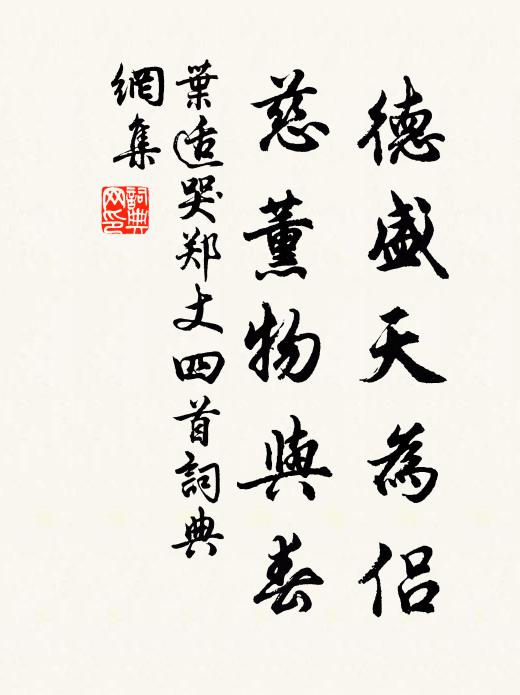 德盛天為侶
慈薰物與春
葉适哭郑丈四首詞典
網集
詞典網印